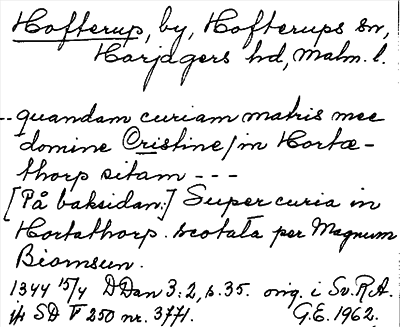 Hofterup, by, Hofterups sn,
Harjagers hd, Malm. l.
-- quandam curiam matris mee
domine Cristine / in Hortæ-
thorp sitam - - -
[På baksidan:] Super curia in
Hortathorp. scotata per Magnum
Biornsun.
1344 15/4 DDan 3:2, s. 35. orig. i Sv.R.A.
jfr SD V 250 nr. 3771. G.E. 1962.